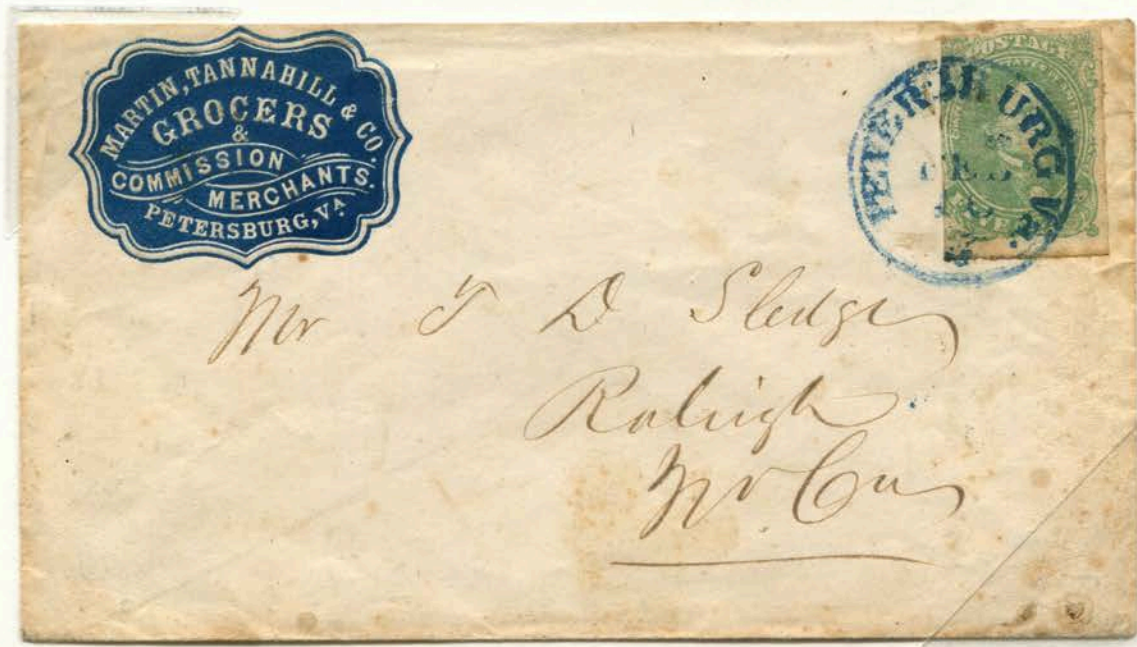 MARTIN, TANNAHILL & CO.
GROCERS
&
COMMISSION
MERCHANTS.
PETERSBURG, VA
POSTAGE
PETERSBURG Va.
FEB
Mr T D Sledge
Raleigh
No Ca